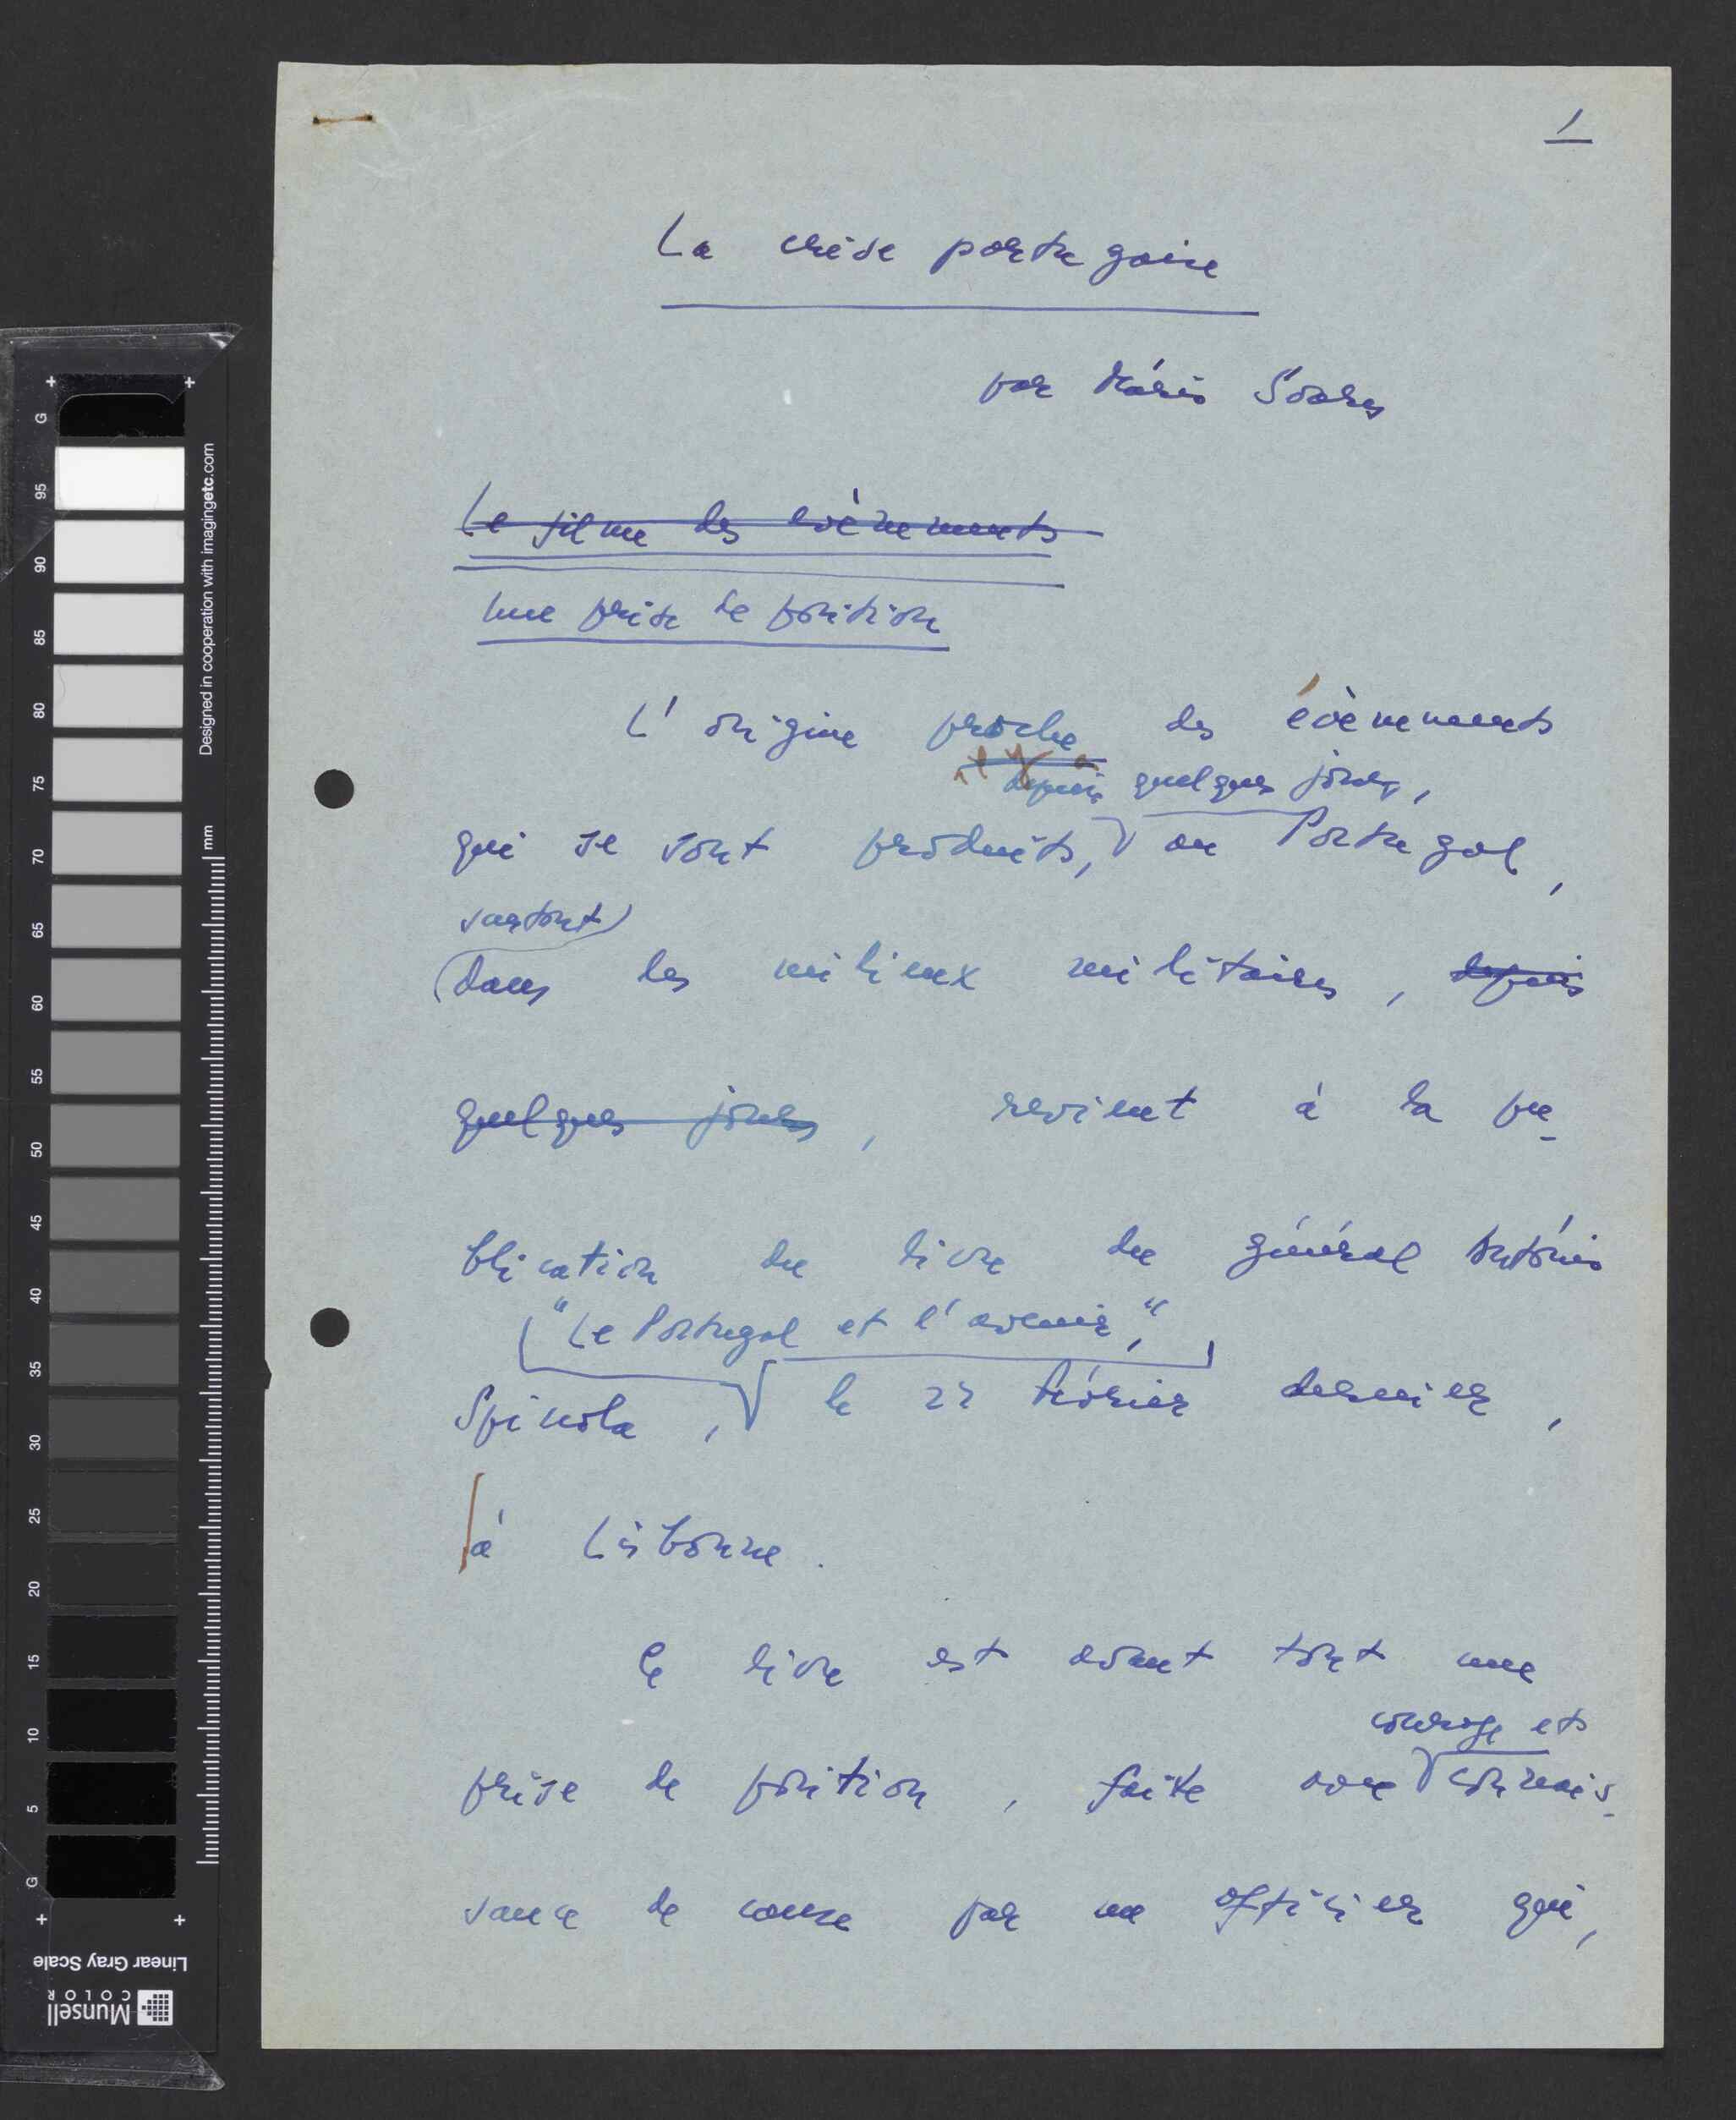 1
La crise portugaise
par Mário Soares
Le filme des evènements
Une prise de position
L'origine proche des évènements
depuis quelques jours,
qui se sont produits, au Portugal,
surtout
dans les milieux militaires, depuis
quelques jours, revient à la pu-
blication du livre du général António
"Le Portugal et l'avenir",
Spínola, le 22 février dernier,
à Lisbonne.
Le livre est avant tout une
courage et
prise de position, faite avec connais-
sance de cause par un officier qui,
G
95
90
85
80
75
70
65
60
55
50
45
40
35
30
25
20
15
10
5
G
Designed in cooperation with imagingetc.com
mm
Linear Gray Scale
Munsell
COLOR